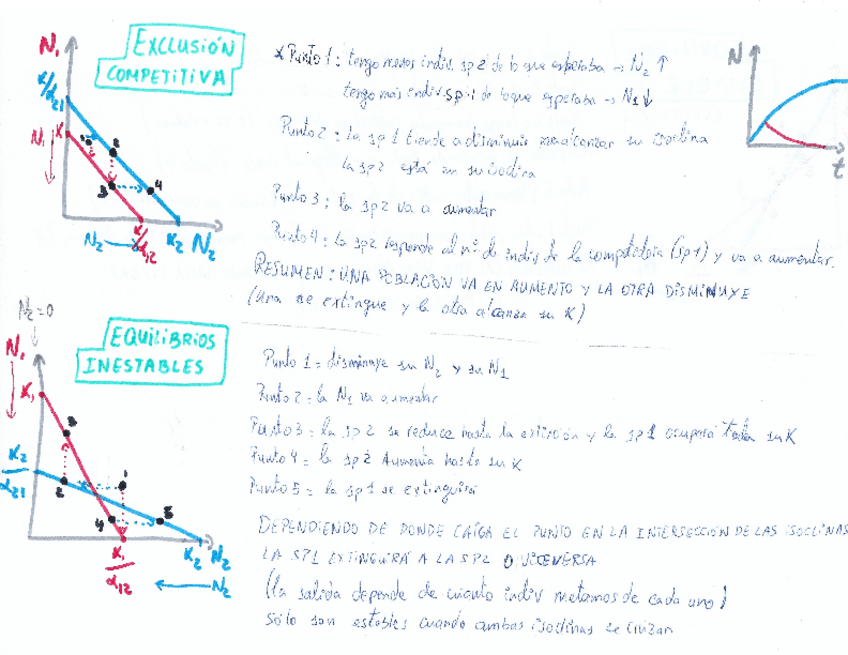 EXCLUSIÓN
COMPETITIVA
N₁
K/α₂₁
K
N₁
1
2
3
4
K/α₁₂
K₂
N₂
N₂
* Punto 1: tengo menos indiv. sp2 de lo que esperaba → N₂ ↑
tengo más indiv. sp1 de lo que esperaba → N₁ ↓
Punto 2: la sp1 tiende a disminuir para alcanzar su isoclina
la sp2 está en su isoclina
Punto 3: la sp2 va a aumentar
Punto 4: la sp2 responde al nº de indiv de la competidora (sp1) y va a aumentar.
RESUMEN: UNA POBLACIÓN VA EN AUMENTO Y LA OTRA DISMINUYE
(una se extingue y la otra alcanza su K)
N
t
N₂=0
EQUILIBRIOS
INESTABLES
N₁
K₁
K₂/α₂₁
3
2
1
4
5
K₁/α₁₂
K₂
N₂
N₂
Punto 1 = disminuye su N₂ y su N₁
Punto 2 = la N₁ va aumentar
Punto 3 = la sp2 se reduce hasta la extinción y la sp1 ocupará toda su K
Punto 4 = la sp2 Aumenta hasta su K
Punto 5 = la sp1 se extinguirá
DEPENDIENDO DE DONDE CAIGA EL PUNTO EN LA INTERSECCIÓN DE LAS ISOCLINAS
LA SP1 EXTINGUIRÁ A LA SP2 O VICEVERSA
(la salida depende de cuanto indiv metamos de cada uno)
Sólo son estables cuando ambas isoclinas se cruzan